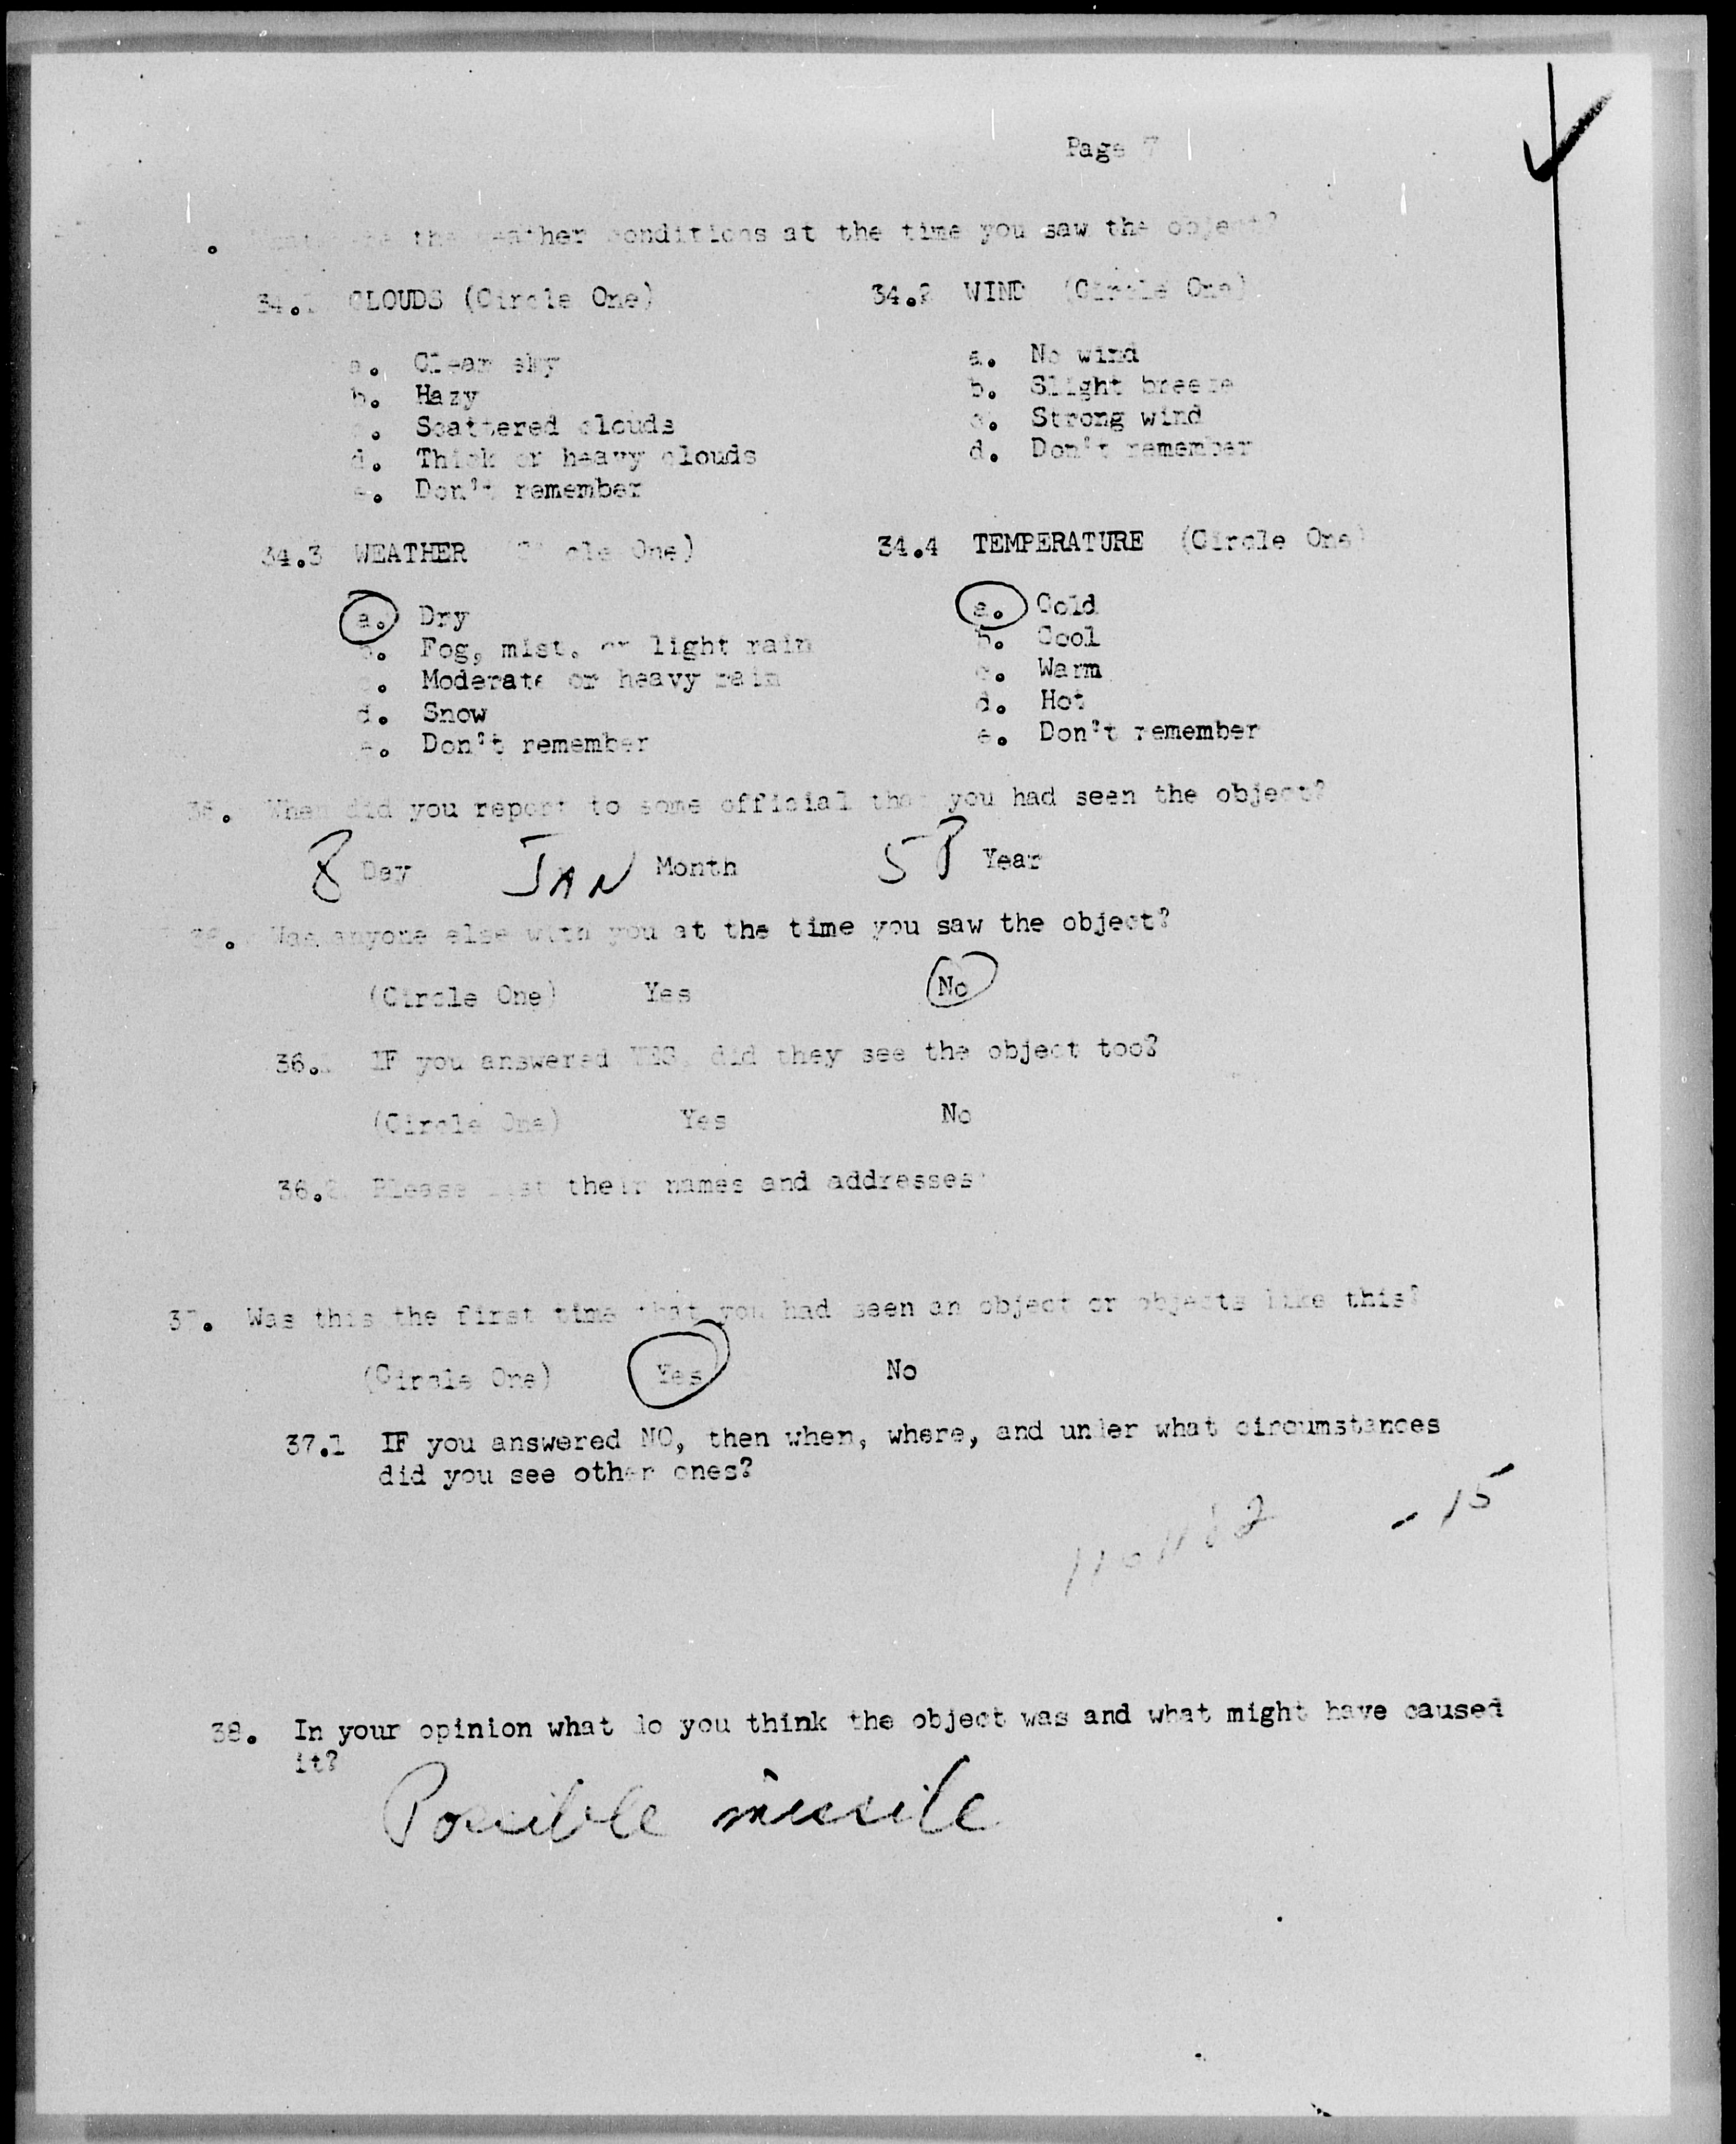 Page 7
the weather conditions at the time you saw the object?
34.1 CLOUDS (Circle One)
a. Clear sky
b. Hazy
c. Scattered clouds
d. Thick or heavy clouds
e. Don't remember
34.2 WIND (Circle One)
a. No wind
b. Slight breeze
c. Strong wind
d. Don't remember
34.3 WEATHER (Circle One)
a. Dry
b. Fog, mist, or light rain
c. Moderate or heavy rain
d. Snow
e. Don't remember
34.4 TEMPERATURE (Circle One)
a. Cold
b. Cool
c. Warm
d. Hot
e. Don't remember
35. When did you report to some official that you had seen the object?
8 Day JAN Month 58 Year
36. Was anyone else with you at the time you saw the object?
(Circle One) Yes No
36.1 IF you answered YES, did they see the object too?
(Circle One) Yes No
36.2 Please list their names and addresses:
37. Was this the first time that you had seen an object or objects like this?
(Circle One) Yes No
37.1 IF you answered NO, then when, where, and under what circumstances
did you see other ones?
- 15
38. In your opinion what do you think the object was and what might have caused
it?
Possible missile